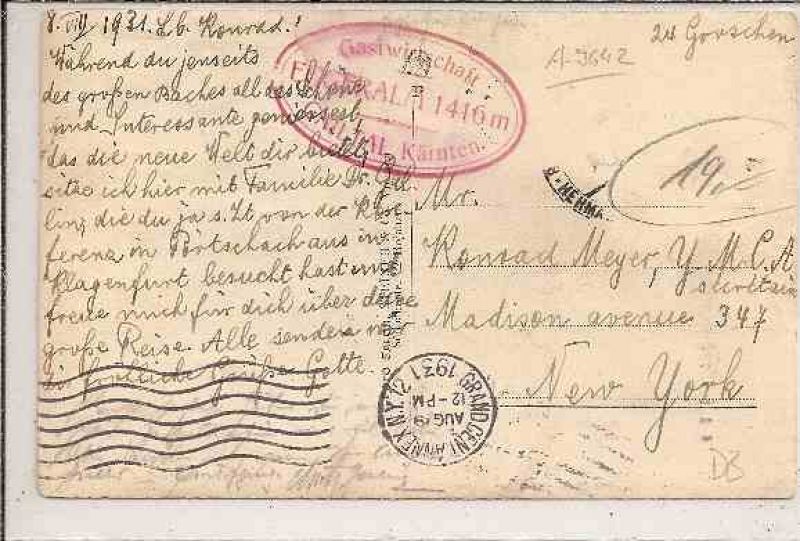 8. VII 1931. Lb. Konrad!
Während du jenseits
des großen Baches all das Schöne
und Interessante geniesest,
das die neue Welt dir bietet,
sitze ich hier mit Familie Dr.
ling die du ja s. Zt von der Kon
ferenz in Pörtschach aus in
Klagenfurt besucht hast und
freue mich für dich über deine
große Reise. Alle senden wir
dir Grüße. Gotte.
Gastwirtschaft
1416 m
Kärnten.
A-9642
24 Groschen
19.-
Mr.
Konrad Meyer, Y. M. C. A.
secretair
Madison avenue 347
New York
GRAND CENT. ANNEX N.Y. 12
AUG 9
12-PM
1931
DB